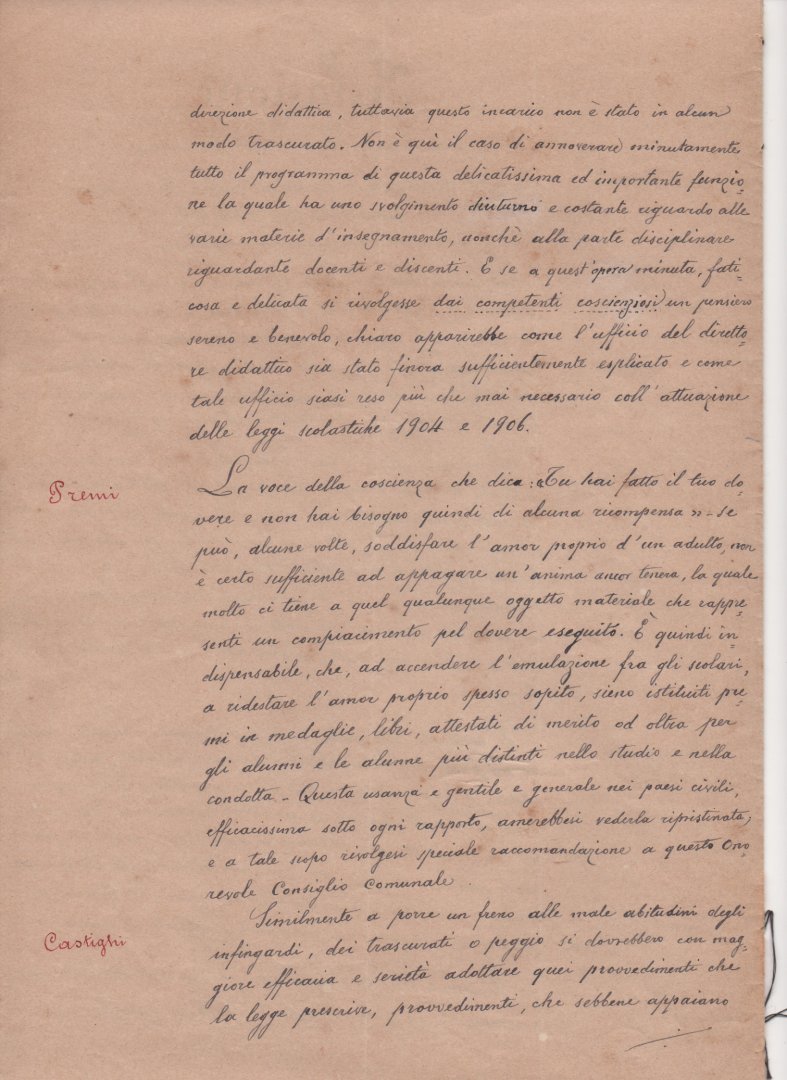 direzione didattica, tuttavia questo incarico non è stato in alcun
modo trascurato. Non è quì il caso di annoverare minutamente
tutto il programma di questa delicatissima ed importante funzio=
ne la quale ha uno svolgimento diuturno e costante riguardo alle
varie materie d'insegnamento, nonchè alla parte disciplinare
riguardante docenti e discenti. E se a quest'opera minuta, fati=
cosa e delicata si rivolgesse dai competenti coscienziosi un pensiero
sereno e benevolo, chiaro apparirebbe come l'ufficio del diretto=
re didattico sia stato finora sufficientemente esplicato e come
tale ufficio siasi reso più che mai necessario coll'attuazione
delle leggi scolastiche 1904 e 1906.
Premi
La voce della coscienza che dice: «Tu hai fatto il tuo do=
vere e non hai bisogno quindi di alcuna ricompensa» - se
può, alcune volte, soddisfare l'amor proprio d'un adulto, non
è certo sufficiente ad appagare un'anima ancor tenera, la quale
molto ci tiene a quel qualunque oggetto materiale che rappre=
senti un compiacimento pel dovere eseguito. È quindi in=
dispensabile, che, ad accendere l'emulazione fra gli scolari,
a ridestare l'amor proprio spesso sopito, sieno istituiti pre=
mi in medaglie, libri, attestati di merito od oltra per
gli alunni e le alunne più distinti nello studio e nella
condotta - Questa usanza e gentile e generale nei paesi civili,
efficacissima sotto ogni rapporto, amerebbesi vederla ripristinata;
e a tale scopo rivolgesi speciale raccomandazione a questo Ono=
revole Consiglio Comunale.
Castighi
Similmente a porre un freno alle male abitudini degli
infingardi, dei trascurati o peggio si dovrebbero con mag=
giore efficacia e serietà adottare quei provvedimenti che
la legge prescrive, provvedimenti, che sebbene appaiano